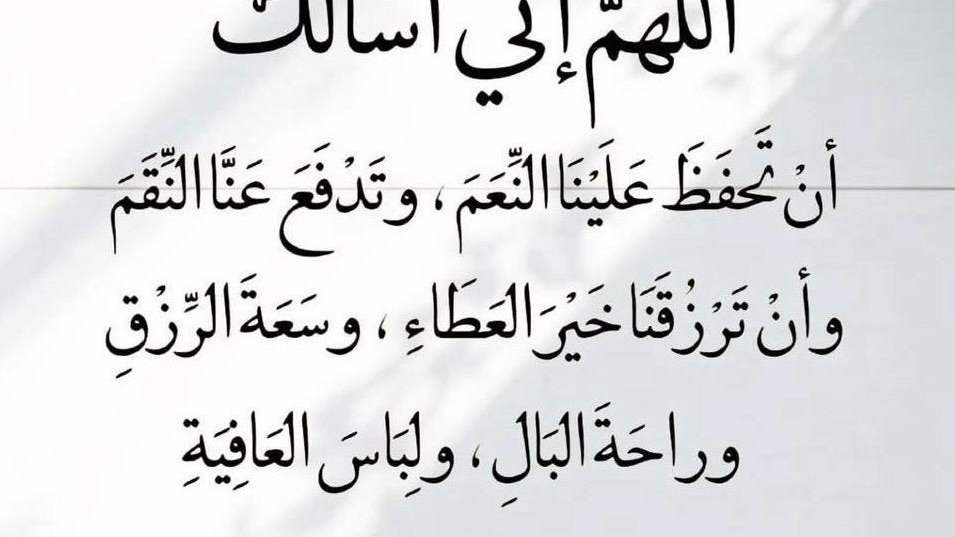 اللهمّ إني أسألك
أنْ تَحفَظَ عَلَيْنَا النِّعَمَ ، وتَدْفَعَ عَنَّا النِّقَمَ
وأنْ تَرْزُقَنَا خَيْرَ العَطَاءِ ، وسَعَةَ الرِّزْقِ
وراحَةَ البَالِ ، ولِبَاسَ العَافِيَةِ